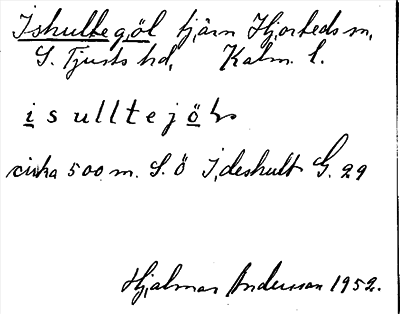 Ishultegöl tjärn Hjorteds sn,
S. Tjusts hd, Kalm. l.
i s ulltejöls
cirka 500 m. S. Ö Ideshult G. 29
Hjalmar Andersson 1952.